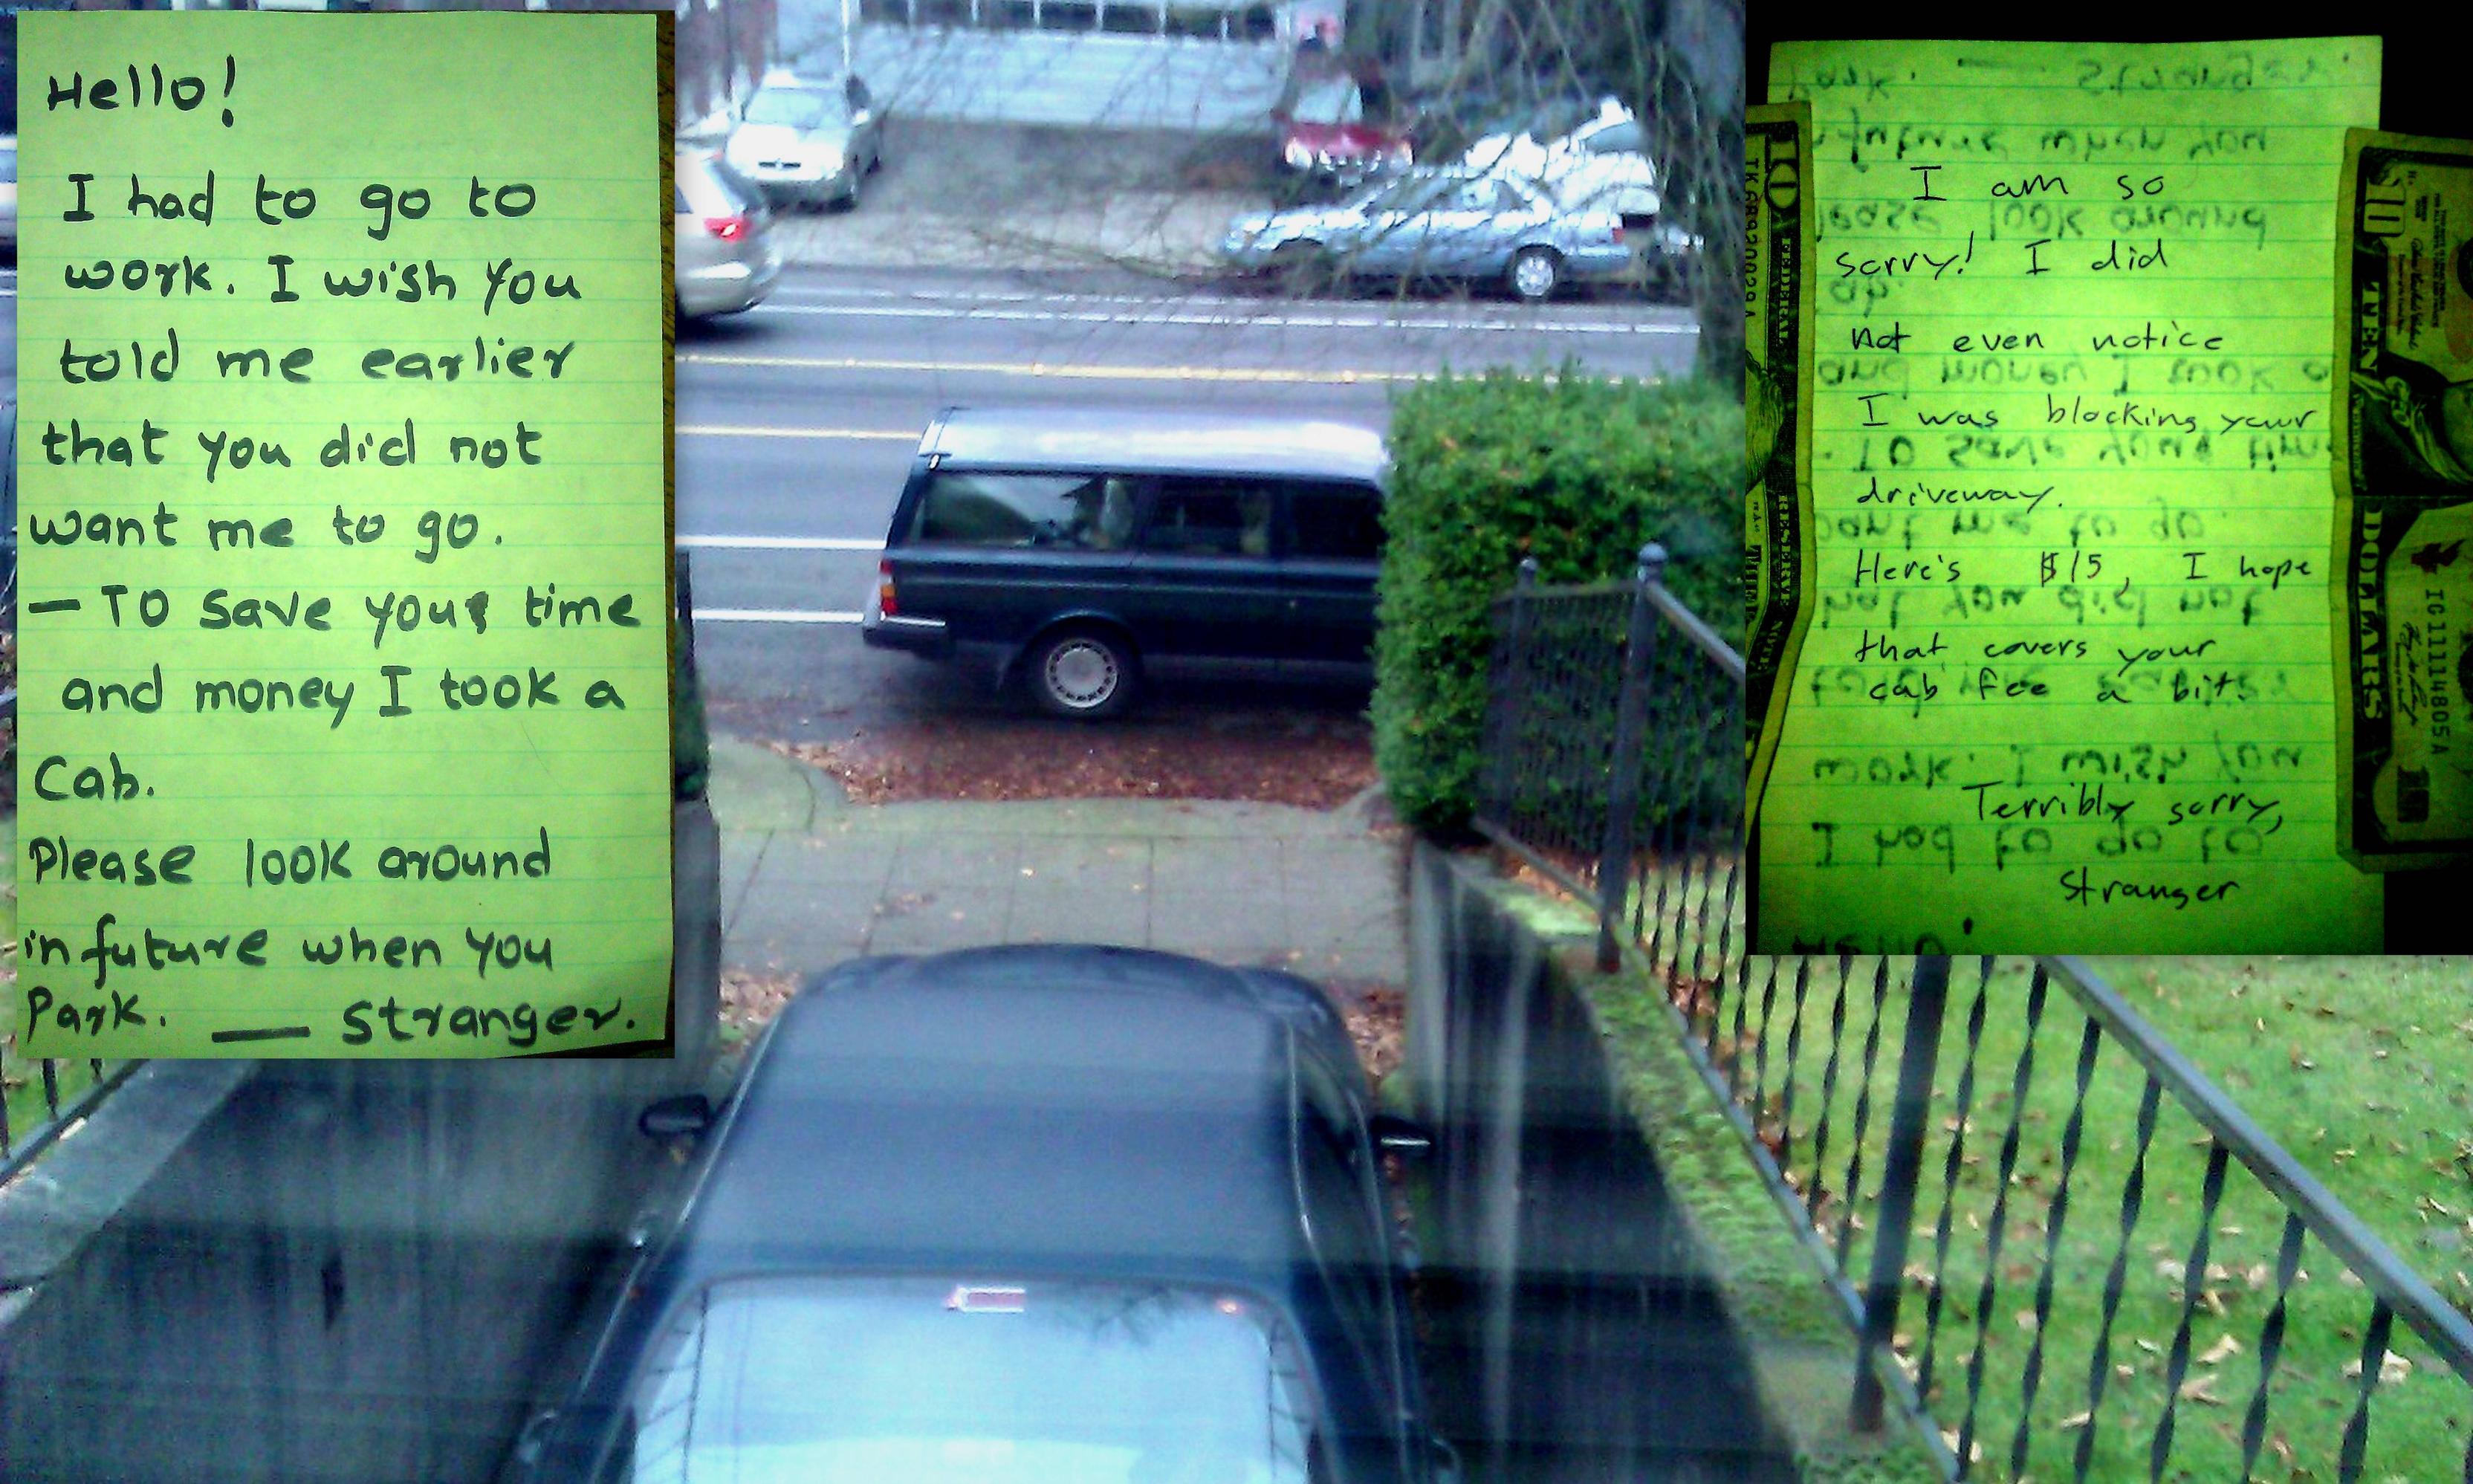 Hello!
I had to go to
work. I wish you
told me earlier
that you did not
want me to go.
— To save your time
and money I took a
Cab.
Please look around
in future when you
Park. — Stranger.
I am so
sorry! I did
not even notice
I was blocking your
driveway.
Here's $15, I hope
that covers your
cab fee a bit.
Terribly sorry,
Stranger
10
FEDERAL RESERVE NOTE
10
TEN DOLLARS
IC11114805A